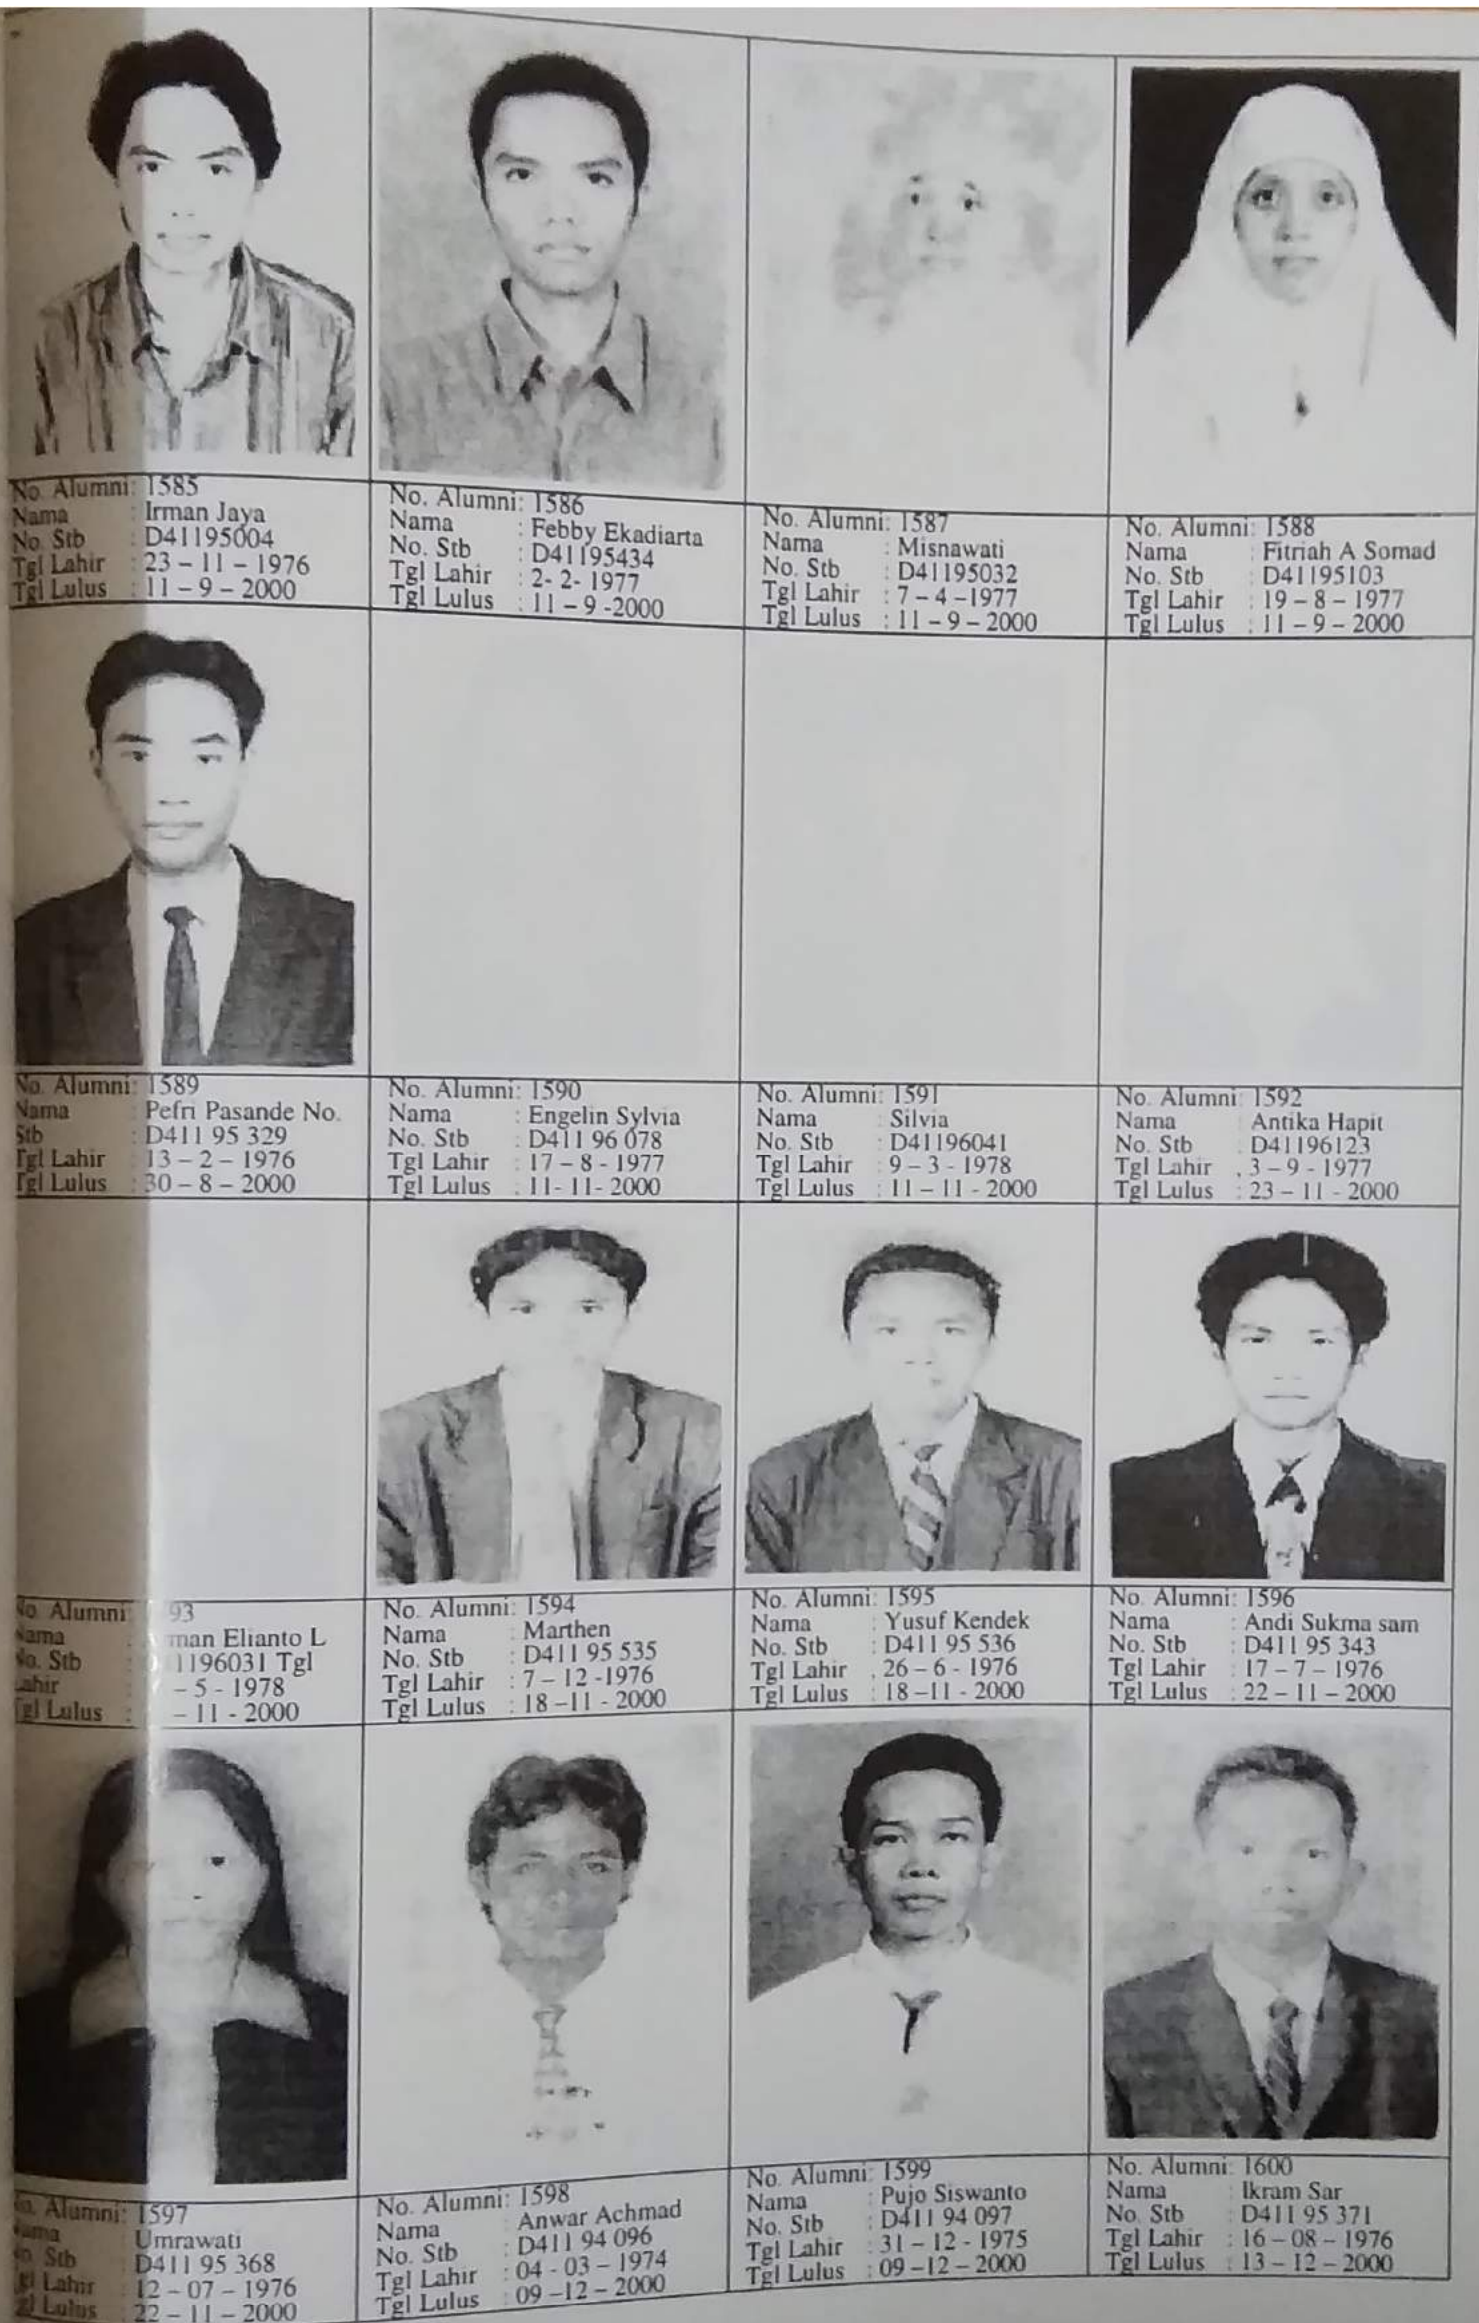 No. Alumni: 1585
Nama : Irman Jaya
No. Stb : D41195004
Tgl Lahir : 23 – 11 – 1976
Tgl Lulus : 11 – 9 – 2000
No. Alumni: 1586
Nama : Febby Ekadiarta
No. Stb : D41195434
Tgl Lahir : 2- 2- 1977
Tgl Lulus : 11 – 9 -2000
No. Alumni: 1587
Nama : Misnawati
No. Stb : D41195032
Tgl Lahir : 7 – 4 –1977
Tgl Lulus : 11 – 9 – 2000
No. Alumni: 1588
Nama : Fitriah A Somad
No. Stb : D41195103
Tgl Lahir : 19 – 8 – 1977
Tgl Lulus : 11 – 9 – 2000
No. Alumni: 1589
Nama : Pefri Pasande No.
Stb : D411 95 329
Tgl Lahir : 13 – 2 – 1976
Tgl Lulus : 30 – 8 – 2000
No. Alumni: 1590
Nama : Engelin Sylvia
No. Stb : D411 96 078
Tgl Lahir : 17 – 8 - 1977
Tgl Lulus : 11- 11- 2000
No. Alumni: 1591
Nama : Silvia
No. Stb : D41196041
Tgl Lahir : 9 – 3 - 1978
Tgl Lulus : 11 – 11 - 2000
No. Alumni: 1592
Nama : Antika Hapit
No. Stb : D41196123
Tgl Lahir : 3 – 9 - 1977
Tgl Lulus : 23 – 11 - 2000
No. Alumni 93
Nama : man Elianto L
No. Stb : 1196031 Tgl
Lahir : – 5 - 1978
Tgl Lulus : – 11 - 2000
No. Alumni: 1594
Nama : Marthen
No. Stb : D411 95 535
Tgl Lahir : 7 – 12 -1976
Tgl Lulus : 18 –11 - 2000
No. Alumni: 1595
Nama : Yusuf Kendek
No. Stb : D411 95 536
Tgl Lahir : 26 – 6 - 1976
Tgl Lulus : 18 –11 - 2000
No. Alumni: 1596
Nama : Andi Sukma sam
No. Stb : D411 95 343
Tgl Lahir : 17 – 7 – 1976
Tgl Lulus : 22 – 11 – 2000
No. Alumni: 1597
Nama : Umrawati
No. Stb : D411 95 368
Tgl Lahir : 12 – 07 – 1976
Tgl Lulus : 22 – 11 – 2000
No. Alumni: 1598
Nama : Anwar Achmad
No. Stb : D411 94 096
Tgl Lahir : 04 - 03 – 1974
Tgl Lulus : 09 –12 – 2000
No. Alumni: 1599
Nama : Pujo Siswanto
No. Stb : D411 94 097
Tgl Lahir : 31 – 12 - 1975
Tgl Lulus : 09 –12 – 2000
No. Alumni: 1600
Nama : Ikram Sar
No. Stb : D411 95 371
Tgl Lahir : 16 – 08 – 1976
Tgl Lulus : 13 – 12 – 2000